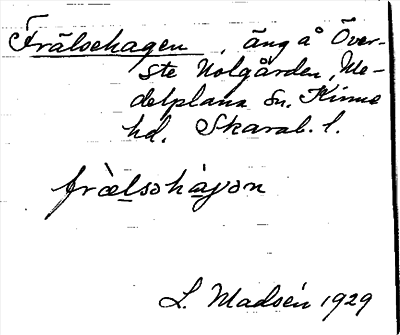 Frälsehagen, äng å Över-
ste Nolgården, Me-
delplana sn. Kinne
hd. Skarab. l.
fræ̀lsəhàgən
L. Madsén 1929